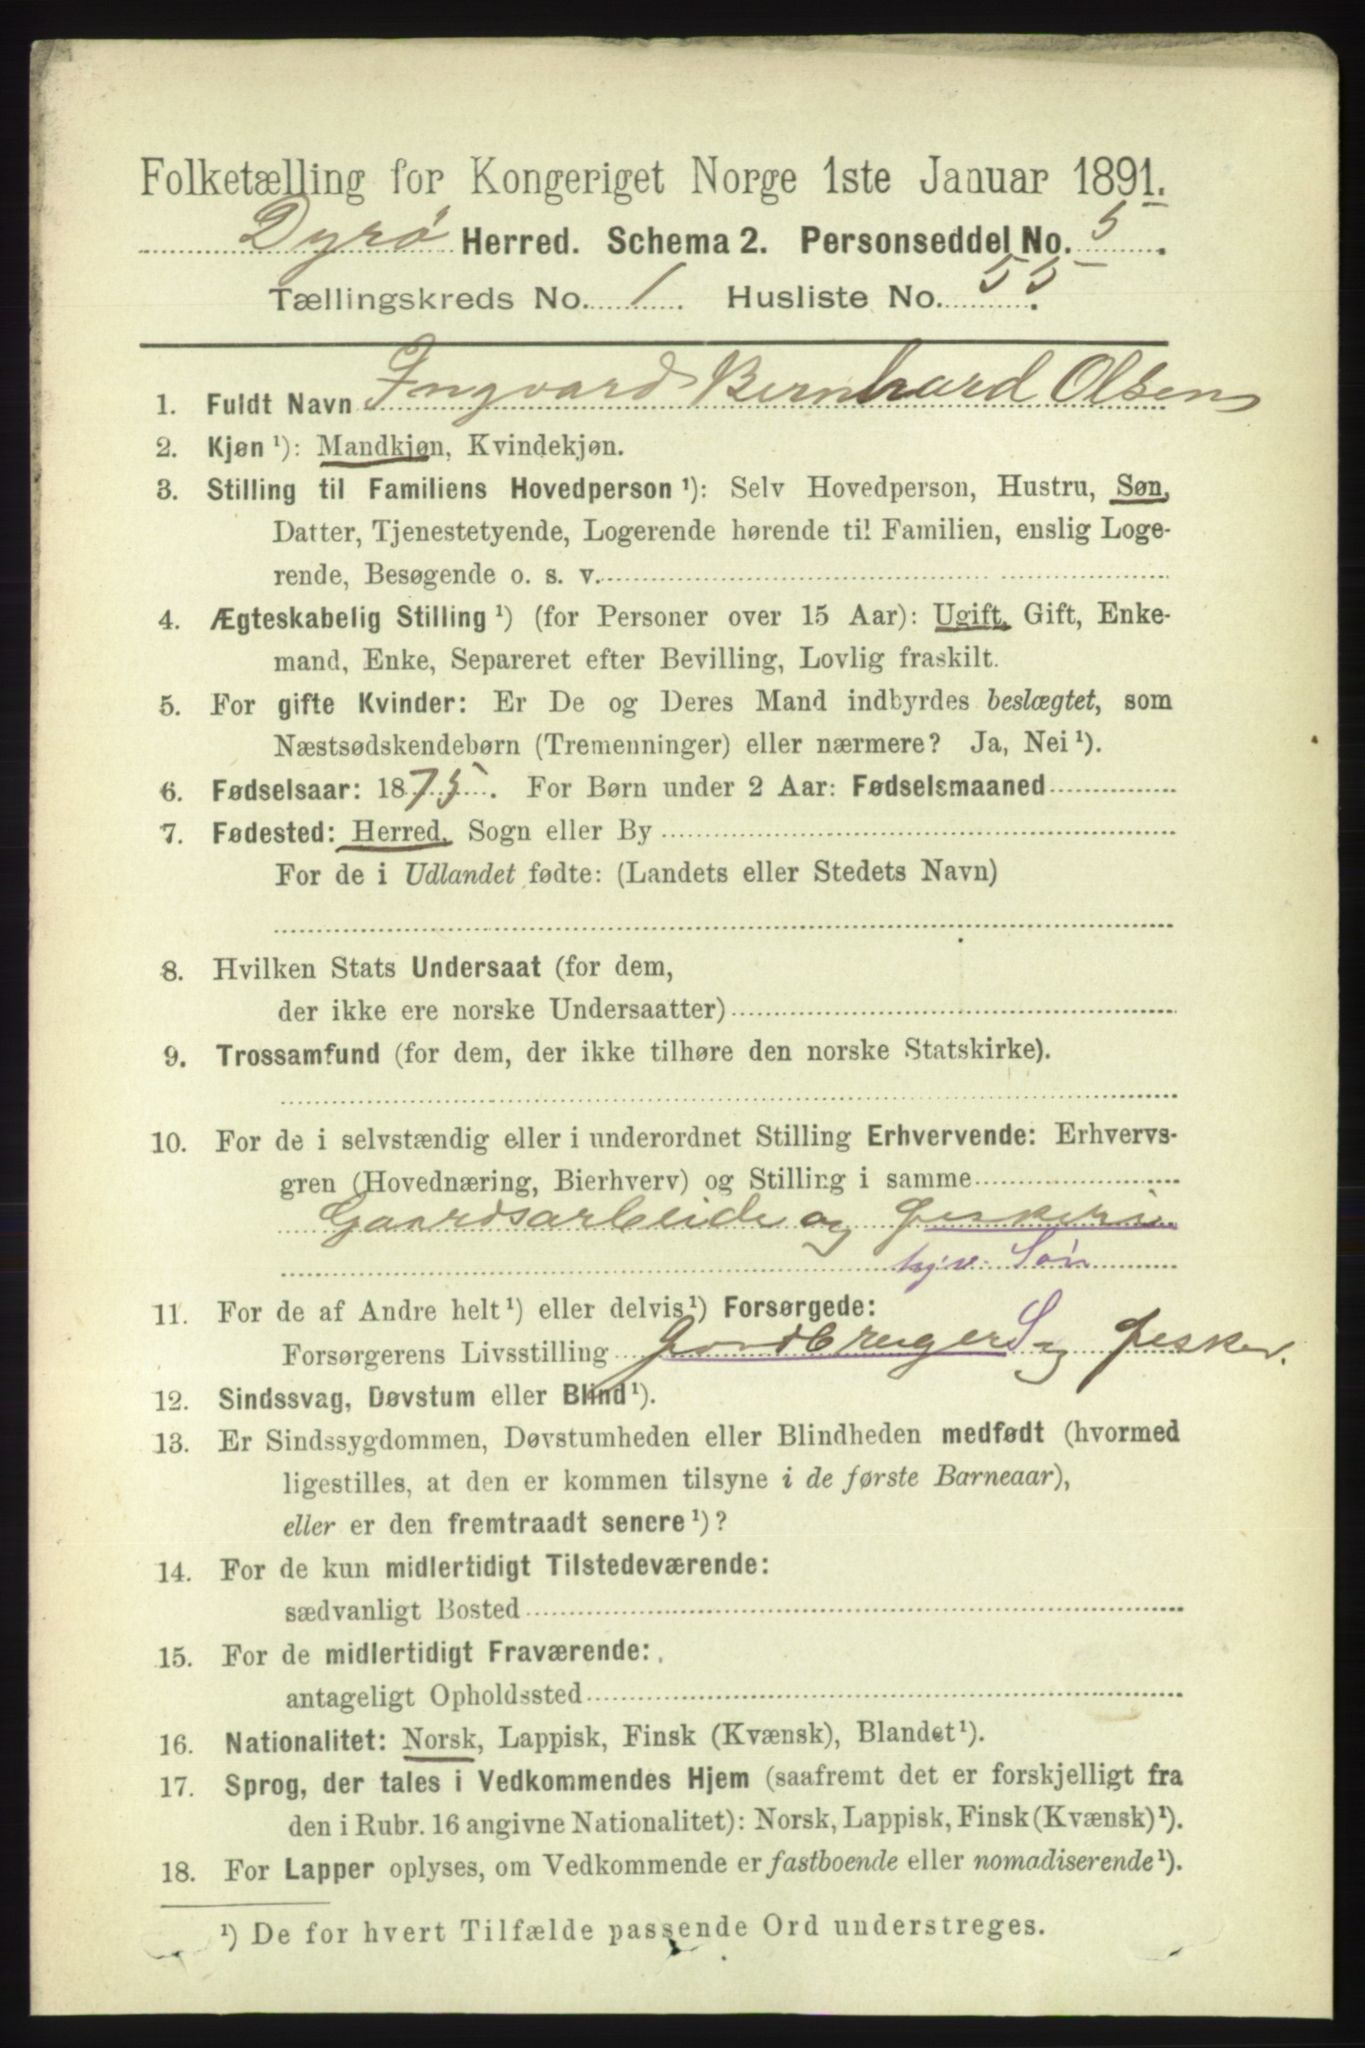 Folketælling for Kongeriget Norge 1ste Januar 1891.
Dyrø Herred. Schema 2. Personseddel No. 5.
Tællingskreds No. 1. Husliste No. 55.
1. Fuldt Navn Ingvard Bernhard Olsen
2. Kjøn ¹): Mandkjøn, Kvindekjøn.
3. Stilling til Familiens Hovedperson ¹): Selv Hovedperson, Hustru, Søn,
Datter, Tjenestetyende, Logerende hørende til Familien, enslig Loge-
rende, Besøgende o. s. v.
4. Ægteskabelig Stilling ¹) (for Personer over 15 Aar): Ugift, Gift, Enke-
mand, Enke, Separeret efter Bevilling, Lovlig fraskilt.
5. For gifte Kvinder: Er De og Deres Mand indbyrdes beslægtet, som
Næstsødskendebørn (Tremenninger) eller nærmere? Ja, Nei ¹).
6. Fødselsaar: 1875. For Børn under 2 Aar: Fødselsmaaned
7. Fødested: Herred, Sogn eller By
For de i Udlandet fødte: (Landets eller Stedets Navn)
8. Hvilken Stats Undersaat (for dem,
der ikke ere norske Undersaatter)
9. Trossamfund (for dem, der ikke tilhøre den norske Statskirke).
10. For de i selvstændig eller i underordnet Stilling Erhvervende: Erhvervs-
gren (Hovednæring, Bierhverv) og Stilling i samme
Gaardsarbeide og Fiskeri
hjv. Søn
11. For de af Andre helt ¹) eller delvis ¹) Forsørgede:
Forsørgerens Livsstilling Gardbruger S og Fisker.
12. Sindssvag, Døvstum eller Blind ¹).
13. Er Sindssygdommen, Døvstumheden eller Blindheden medfødt (hvormed
ligestilles, at den er kommen tilsyne i de første Barneaar),
eller er den fremtraadt senere ¹)?
14. For de kun midlertidigt Tilstedeværende:
sædvanligt Bosted
15. For de midlertidigt Fraværende:
antageligt Opholdssted
16. Nationalitet: Norsk, Lappisk, Finsk (Kvænsk), Blandet ¹).
17. Sprog, der tales i Vedkommendes Hjem (saafremt det er forskjelligt fra
den i Rubr. 16 angivne Nationalitet): Norsk, Lappisk, Finsk (Kvænsk) ¹).
18. For Lapper oplyses, om Vedkommende er fastboende eller nomadiserende ¹).
¹) De for hvert Tilfælde passende Ord understreges.